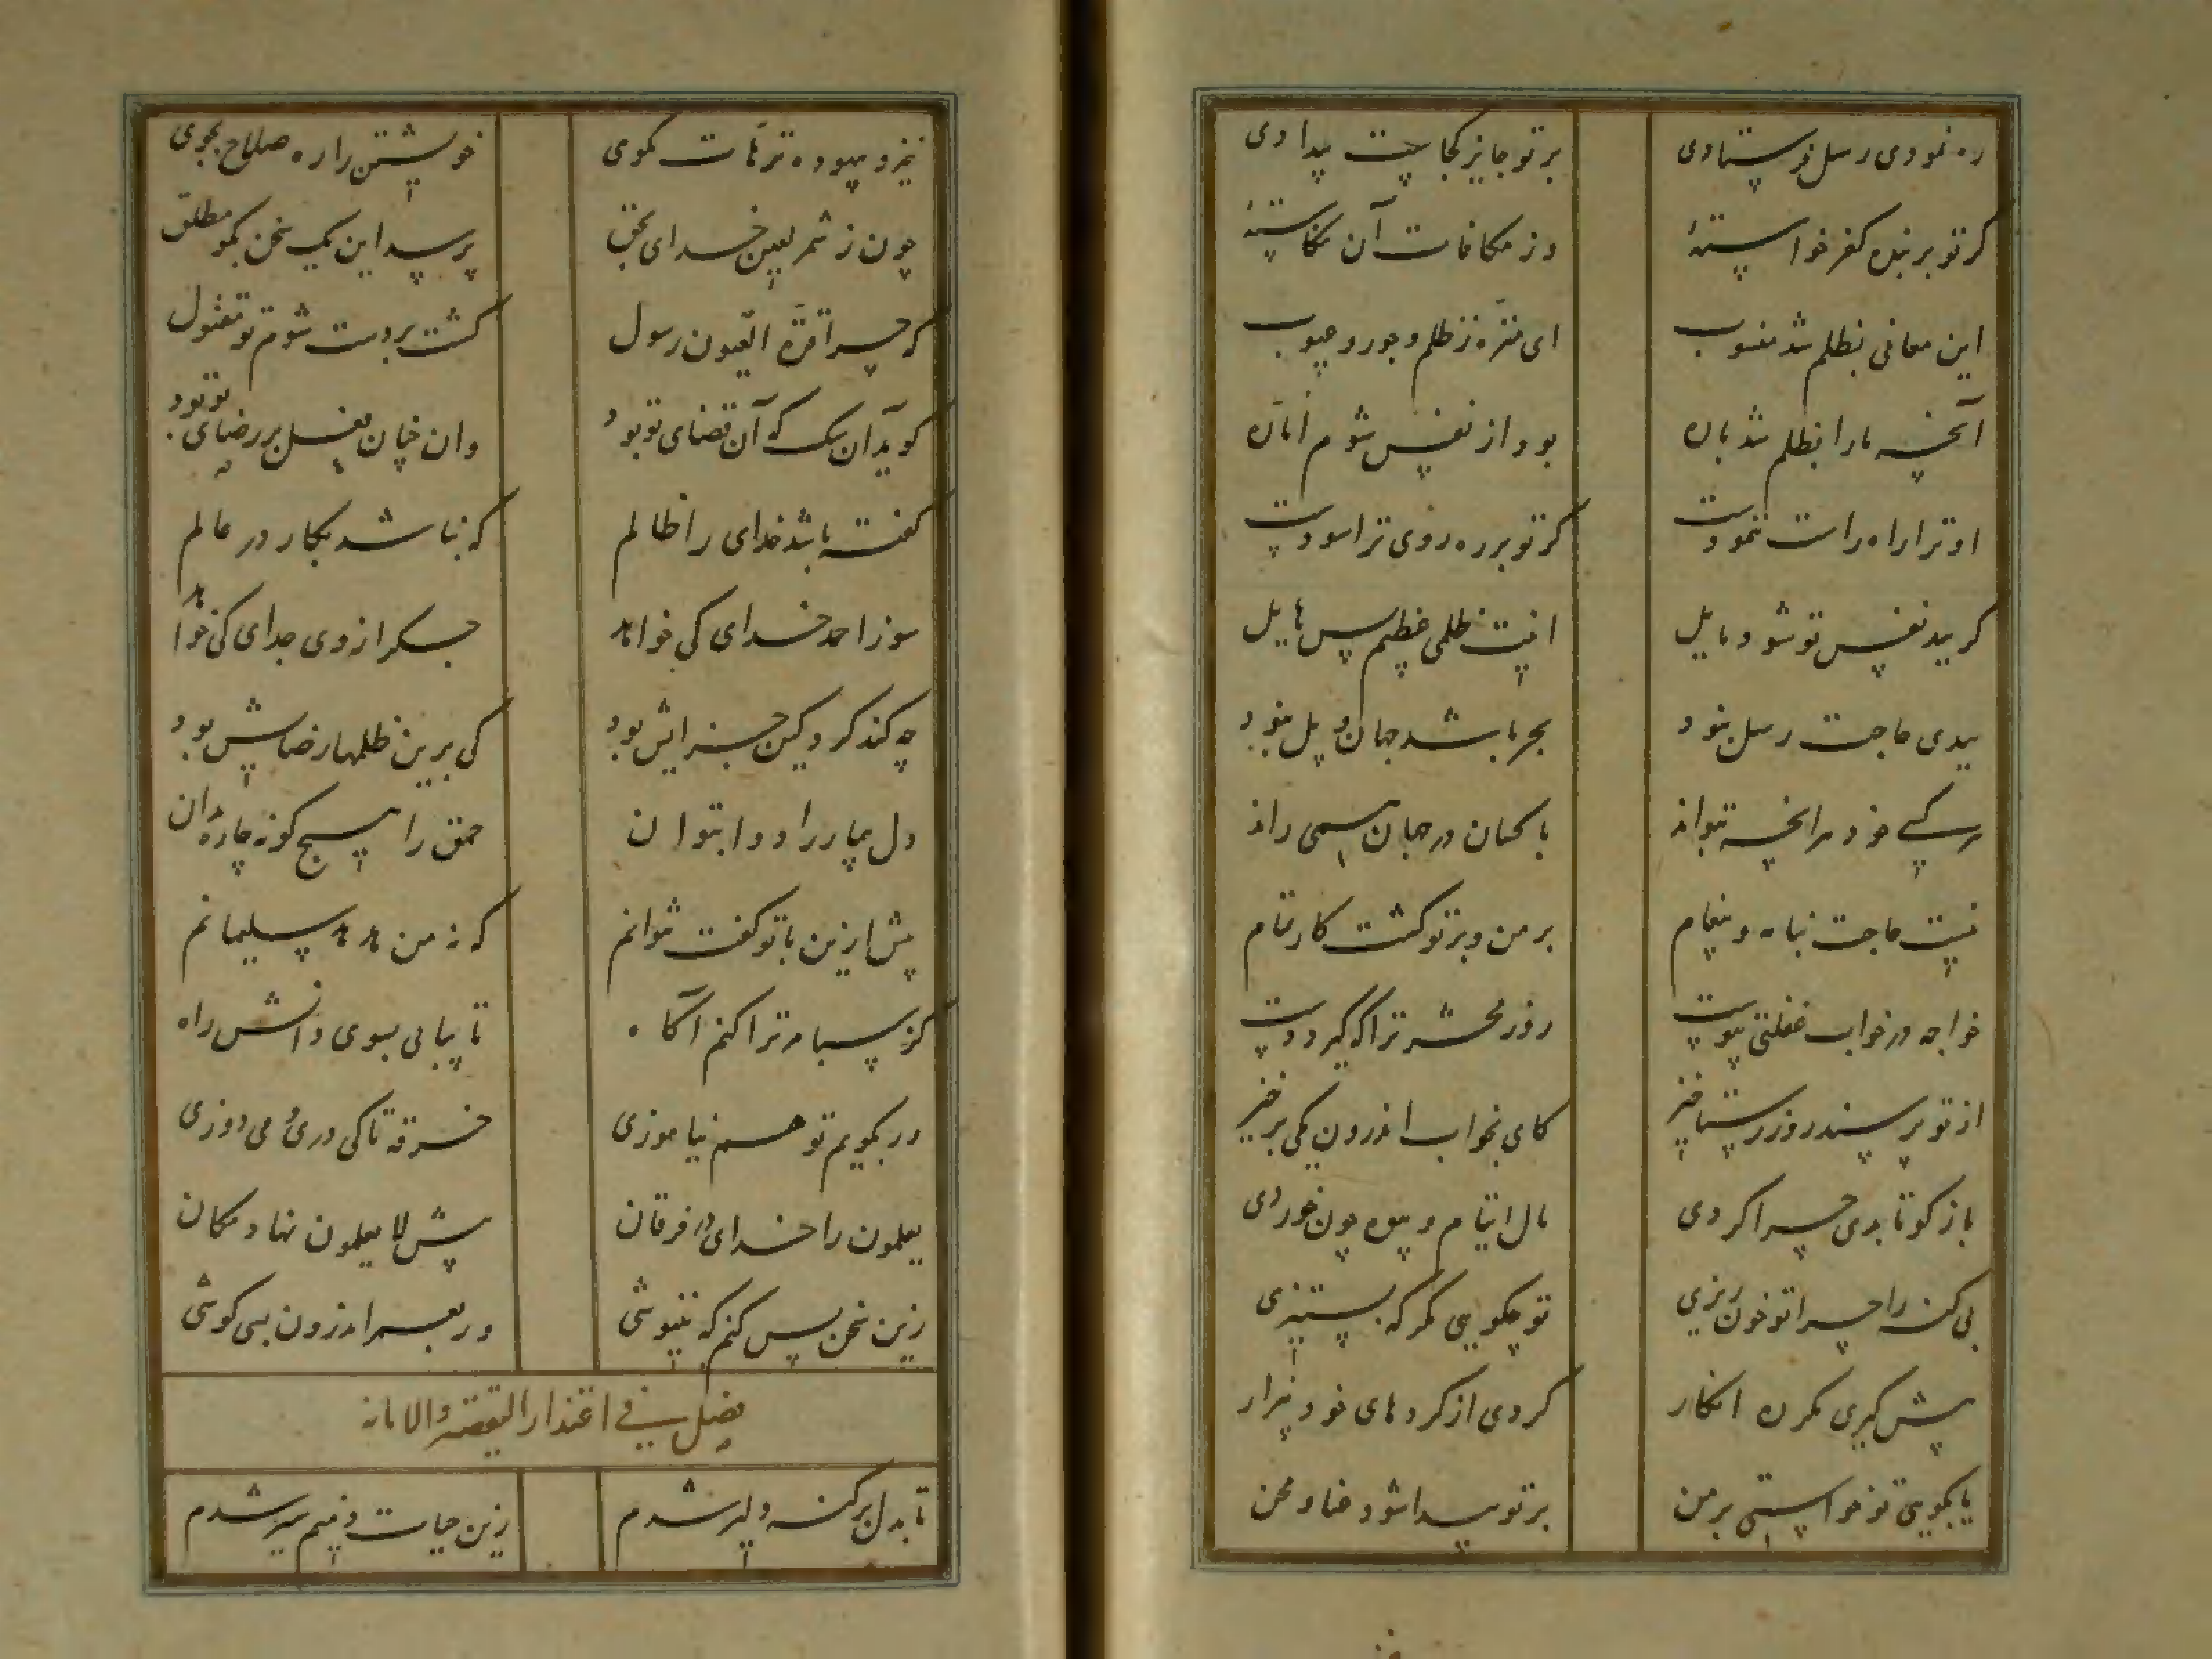 ره نمودی رسل فرستادی بر تو جایز کجاست بیدادی
گر تو بر بنده کفر خواسته وز مکافات آن نکاسته
این معانی بظلم شد منسوب ای منزه ز ظلم و جور و عیوب
آنچه ما را بظلم شد باره بود از نفس شوم اماره
او ترا راه راست بنمودست گر تو بر ره روی ترا سودست
گر ببد نفس تو شود مایل اینت ظلمی عظیم پس هایل
بیدی حاجت رسل نبود بحر باشد جهان و پل نبود
هر کسی خود هر آنچه بتواند با کسان در جهان همی راند
نیست حاجت بنامه و پیغام بر من و بر تو گشت کار تمام
خواجه در خواب غفلتی پیوست روز محشر ترا که گیرد دست
از تو پرسند روز رستاخیز کای بخواب اندرون یکی برخیز
باز گو تا بدی چرا کردی مال ایتام و بیوه چون خوردی
بی گنه را چرا تو خون ریزی تو چگویی مگر که بستیزی
پیش گیری مگر ره انکار گردی از کردهای خود بیزار
یا بگویی تو خواستی بر من بر تو پیدا شود عنا و محن
خیز و بیهوده ترهات مگوی خویشتن را ره صلاح بجوی
چون ز شمر لعین خدای بحق پرسد این یک سخن بگو مطلق
که چرا قرة العیون رسول گشت بر دست شوم تو مقتول
گوید آن سگ که آن قضای تو بود وان چنان فعل بر رضای تو بود
گفته باشد خدای را ظالم که نباشد بکار در عالم
سوز احمد خدای کی خواهد جگر از وی جدای کی خواهد
چه کند کرد کین جزایش بود کی برین ظلمها رضایش بود
دل بیمار را دوا بتوان حمق را هیچ گونه چاره مدان
پیش ازین با تو گفت نتوانم که نه من هدهد سلیمانم
کز سبا مر ترا کنم آگاه تا بیابی بسوی دانش راه
ور بگویم تو هم نیاموزی خرقه تا کی دری و می دوزی
یعلمون را خدای در فرقان پیش لا یعلمون نهاد مکان
زین سخن بس کنم که ننیوشی ور بعمر اندرون بسی کوشی
فصل فی اعتذار القصه والامانه
تا بدل بر گنه دلیر شدم زین حیات ذمیم سیر شدم